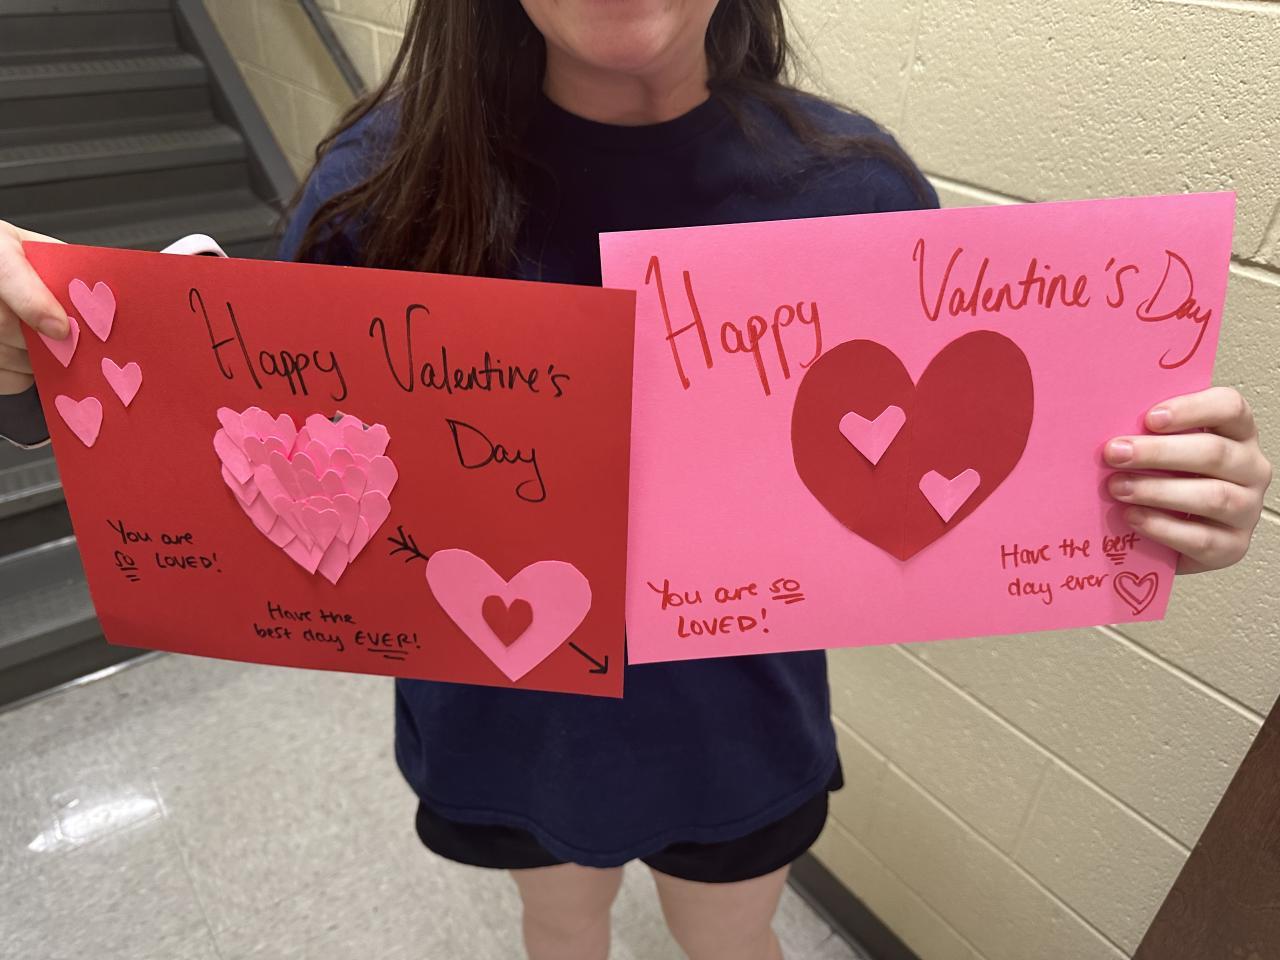 Happy Valentine's
Day
You are
so LOVED!
Have the
best day EVER!
Happy Valentine's Day
You are so
LOVED!
Have the best
day ever